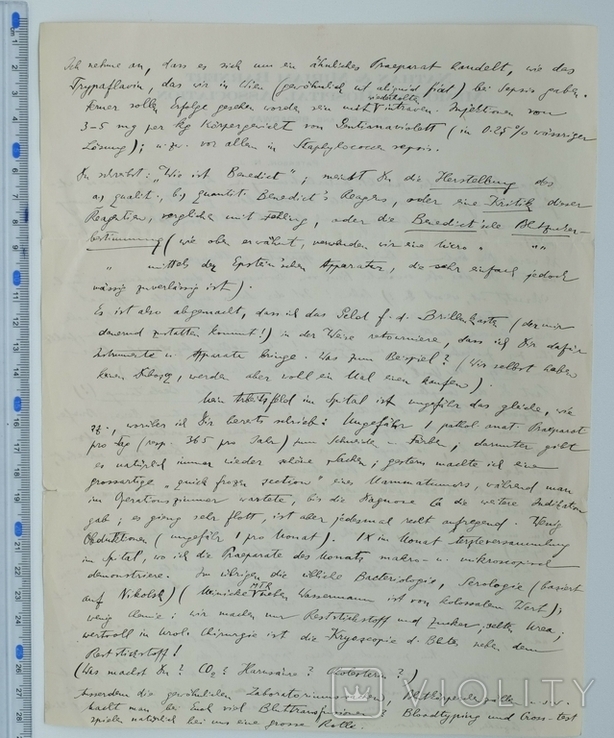 Ich nehme an, dass es sich um ein ähnliches Praeparat handelt, wie das
Trypaflavin, das wir in Wien (gewöhnlich ut aliquid fiat) bei Sepsis gaben.
Ferner sollen Erfolge gesehen worden sein mit wiederholten intraven. Injektionen von
3-5 mg per kg Körpergewicht von Gentianaviolett (in 0.25% wässriger
Lösung); u. zw. vor allem in Staphylococcen sepsis.
Du schreibst: "Wie ist Benedict"; meinst Du die Herstellung des
a) qualit., b) quantit. Benedict's Reagens, oder eine Kritik dieser
Reagentien, verglichen mit Fehling, oder die Benedict'sche Blutzucker-
bestimmung (wie oben erwähnt, verwenden wir eine Micro " " "
" mittels des Epstein'schen Apparates, die sehr einfach jedoch
mässig zuverlässig ist).
Es ist also abgemacht, dass ich das Geld f. d. Brillenkasten (der mir
dauernd zustatten kommt!) in der Weise retourniere, dass ich Dir dafür
Instrumente u. Apparate bringe. Was zum Beispiel? (Wir selbst haben
keinen Dubosq, werden aber wohl ein Mal einen kaufen).
Mein Arbeitsfeld im Spital ist ungefähr das gleiche, wie
, worüber ich Dir bereits schrieb: Ungefähr 1 pathol. anat. Praeparat
pro Tag (resp. 365 pro Jahr) zum Schneiden u. Färben; darunter gibt
es natürlich immer wieder schöne Sachen; gestern machte ich eine
grossartige "quick frozen section" eines Mammatumors, während man
im Operationszimmer wartete, bis die Diagnose für die weitere Indikation
gab; es gieng sehr flott, ist aber jedesmal recht aufregend. Wenig
Obduktionen (ungefähr 1 pro Monat). 1X im Monat Ärzteversammlung
im Spital, wo ich die Praeparate des Monats makro- u. mikroskopisch
demonstriere. Im übrigen die übliche Bacteriologie, Serologie (basiert
auf Nikolsk) (Meinicke MTR neben Wassermann ist von kolossalem Wert);
wenig Chemie; wir machen nur Reststickstoff und Zucker, selten Urea;
wertvoll in Urol. Chirurgie ist die Kryoscopie d. Blutes neben dem
Reststickstoff!
(Was machst Du? CO₂? Harnsäure? Cholesterin?)
Ausserdem die gewöhnlichen Laboratoriumssachen, Blutkörperchen u.s.w.
Macht man bei Euch viel Bluttransfusionen? Bloodtyping und Cross-test
spielen natürlich bei uns eine grosse Rolle.
VIOLITY